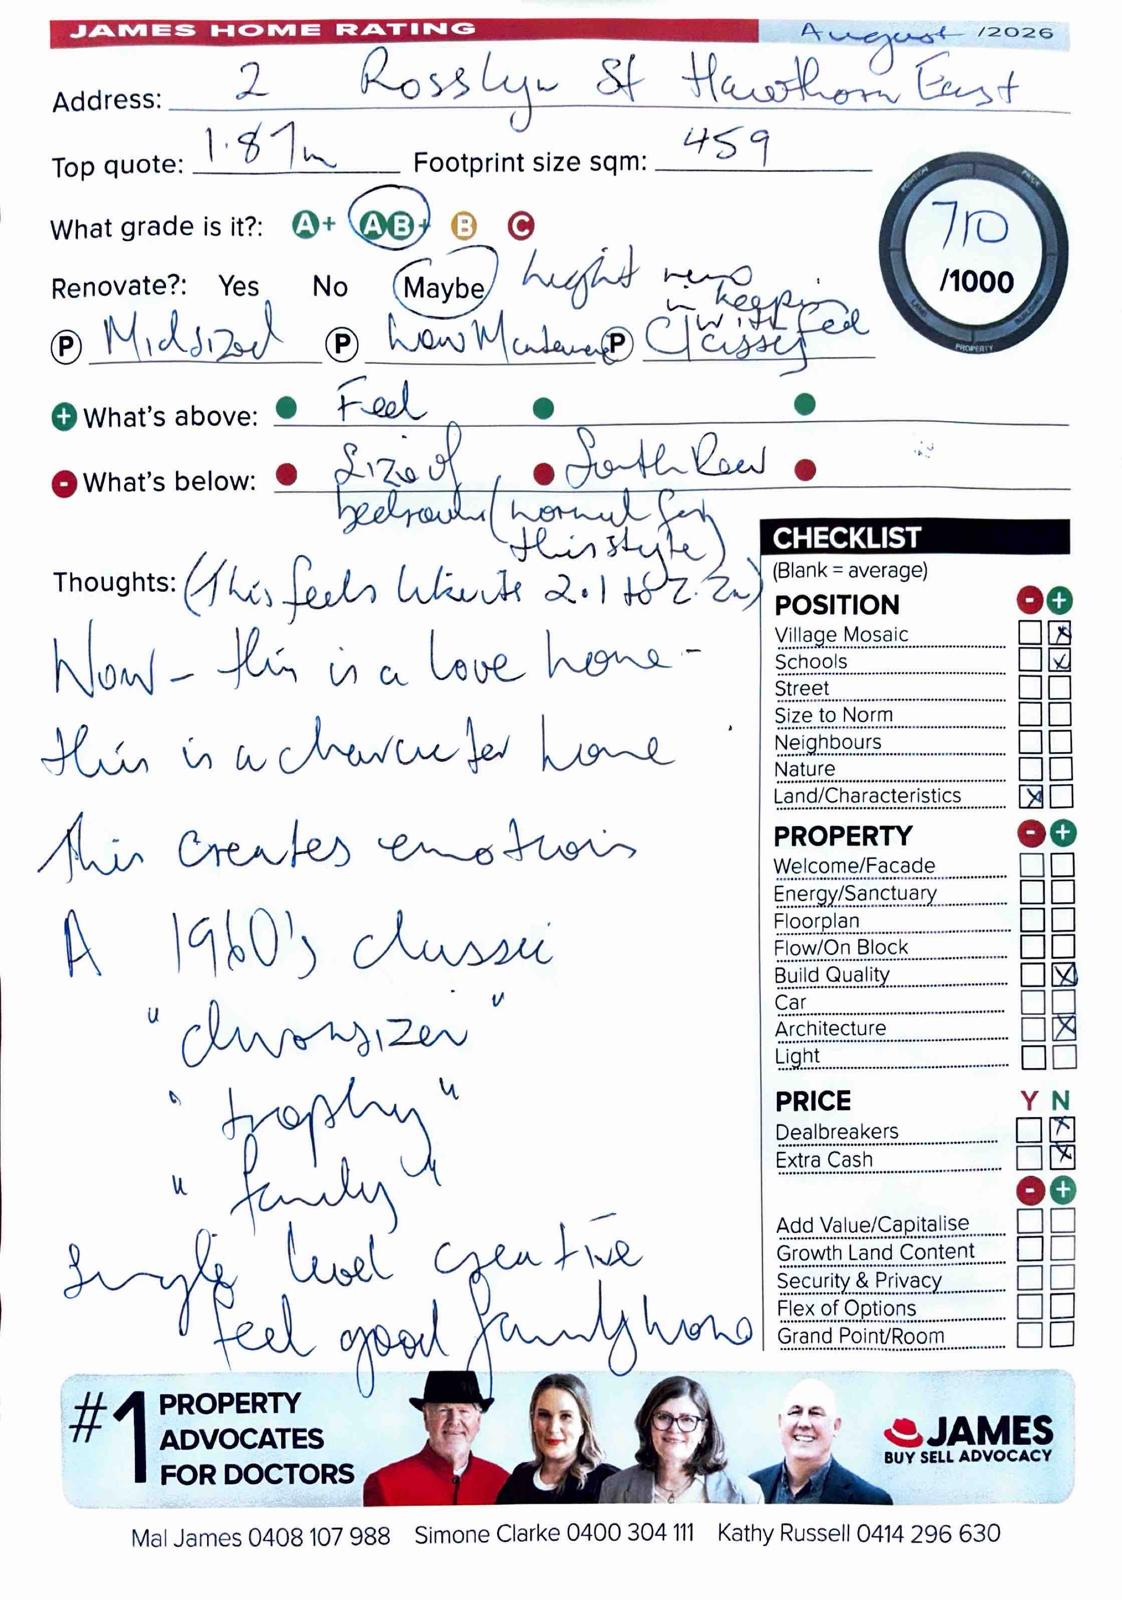 JAMES HOME RATING August /2026
Address: 2 Rosslyn St Hawthorn East
Top quote: 1.87m Footprint size sqm: 459
What grade is it?: A+ AB+ B C
710 /1000
POSITION PRICE LAND BUILDING PROPERTY
Renovate?: Yes No Maybe light reno
in keeping
with feel
P Midsized P Low Maintenance P Classy
+ What's above: Feel
- What's below: Size of South Rear
bedrooms (normal for
this style)
Thoughts: (This feels like its 2.1 to 2.2m)
Now - this is a love home -
this is a character home
this creates emotion
A 1960's classic
"downsizer"
"trophy"
"family"
Single level creative
feel good family home
CHECKLIST
(Blank = average)
POSITION - +
Village Mosaic x
Schools x
Street
Size to Norm
Neighbours
Nature
Land/Characteristics x
PROPERTY - +
Welcome/Facade
Energy/Sanctuary
Floorplan
Flow/On Block
Build Quality x
Car
Architecture x
Light
PRICE Y N
Dealbreakers x
Extra Cash x
- +
Add Value/Capitalise
Growth Land Content
Security & Privacy
Flex of Options
Grand Point/Room
#1 PROPERTY
ADVOCATES
FOR DOCTORS
JAMES
BUY SELL ADVOCACY
Mal James 0408 107 988 Simone Clarke 0400 304 111 Kathy Russell 0414 296 630